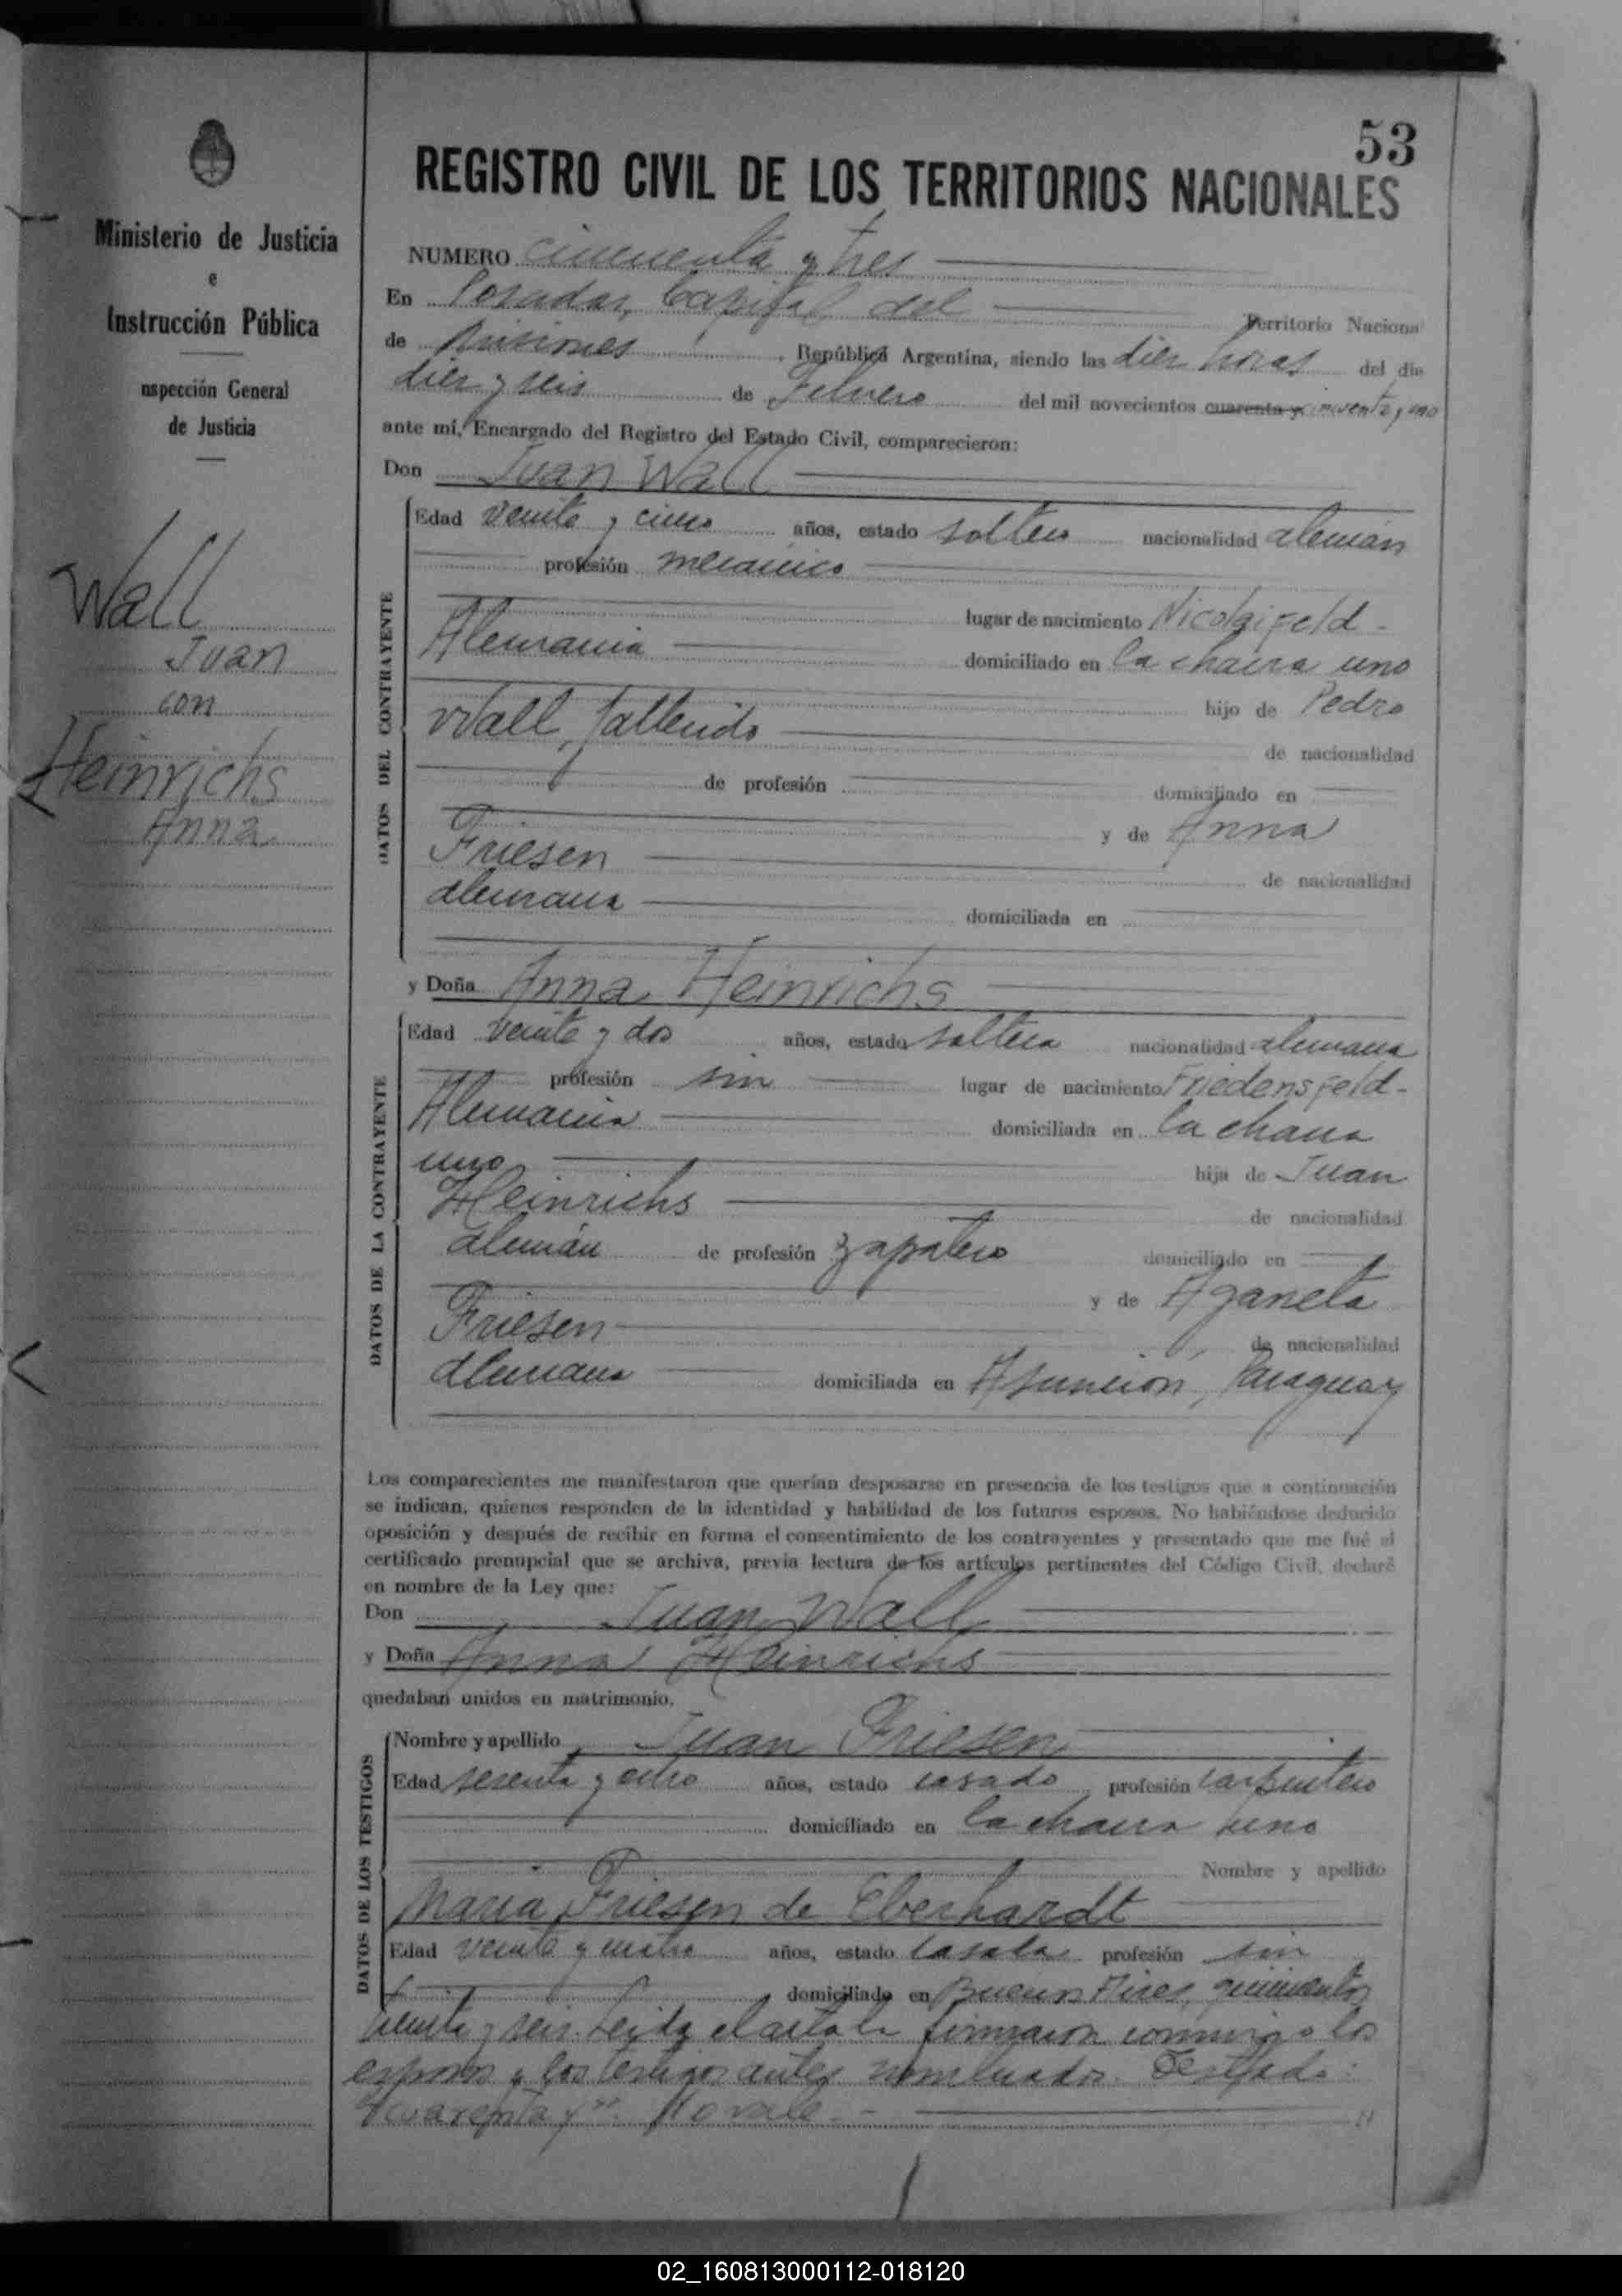 53
REGISTRO CIVIL DE LOS TERRITORIOS NACIONALES
Ministerio de Justicia
e
Instrucción Pública
nspección General
de Justicia
Wall
Juan
con
Heinrichs
Anna
NUMERO cincuenta y tres
En Posadas, Capital del Territorio Naciona
de Misiones, República Argentina, siendo las diez horas del día
diez y seis de Febrero del mil novecientos cuarenta y cincuenta y uno
ante mí, Encargado del Registro del Estado Civil, comparecieron:
Don Juan Wall
DATOS DEL CONTRAYENTE
Edad veinte y cinco años, estado soltero nacionalidad alemán
profesión mecánico
lugar de nacimiento Nicolaifeld-
Alemania domiciliado en la chacra uno
hijo de Pedro
Wall, fallecido de nacionalidad
de profesión domiciliado en
y de Anna
Friesen de nacionalidad
alemana domiciliada en
y Doña Anna Heinrichs
DATOS DE LA CONTRAYENTE
Edad veinte y dos años, estado soltera nacionalidad alemana
profesión sin lugar de nacimiento Friedensfeld-
Alemania domiciliada en la chacra
uno hija de Juan
Heinrichs de nacionalidad
alemán de profesión zapatero domiciliado en
y de Aganeta
Friesen de nacionalidad
alemana domiciliada en Asunción, Paraguay
Los comparecientes me manifestaron que querían desposarse en presencia de los testigos que a continuación
se indican, quienes responden de la identidad y habilidad de los futuros esposos. No habiéndose deducido
oposición y después de recibir en forma el consentimiento de los contrayentes y presentado que me fué el
certificado prenupcial que se archiva, previa lectura de los artículos pertinentes del Código Civil, declaré
en nombre de la Ley que:
Don Juan Wall
y Doña Anna Heinrichs
quedaban unidos en matrimonio.
DATOS DE LOS TESTIGOS
Nombre y apellido Juan Friesen
Edad sesenta y ocho años, estado casado profesión carpintero
domiciliado en la chacra uno
Nombre y apellido
Maria Friesen de Eberhardt
Edad veinte y cuatro años, estado casada profesión sin
domiciliada en Buenos Aires, quinientos
veinte y seis. Leida el acta la firmaron conmigo los
esposos y los testigos antes nombrados. Testado:
"cuarenta y". No vale.-
02_160813000112-018120